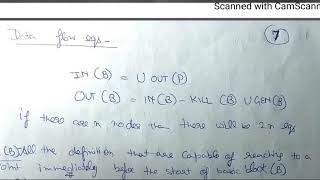 Scanned with CamScann
Data flow eqs -
7
IN (B) = U OUT (P)
OUT (B) = IN (B) - KILL (B) U GEN (B)
if there are n nodes than there will be 2n eqs
(B) All the definition that are capable of reaching to a
point immediately before the start of basic block (B)